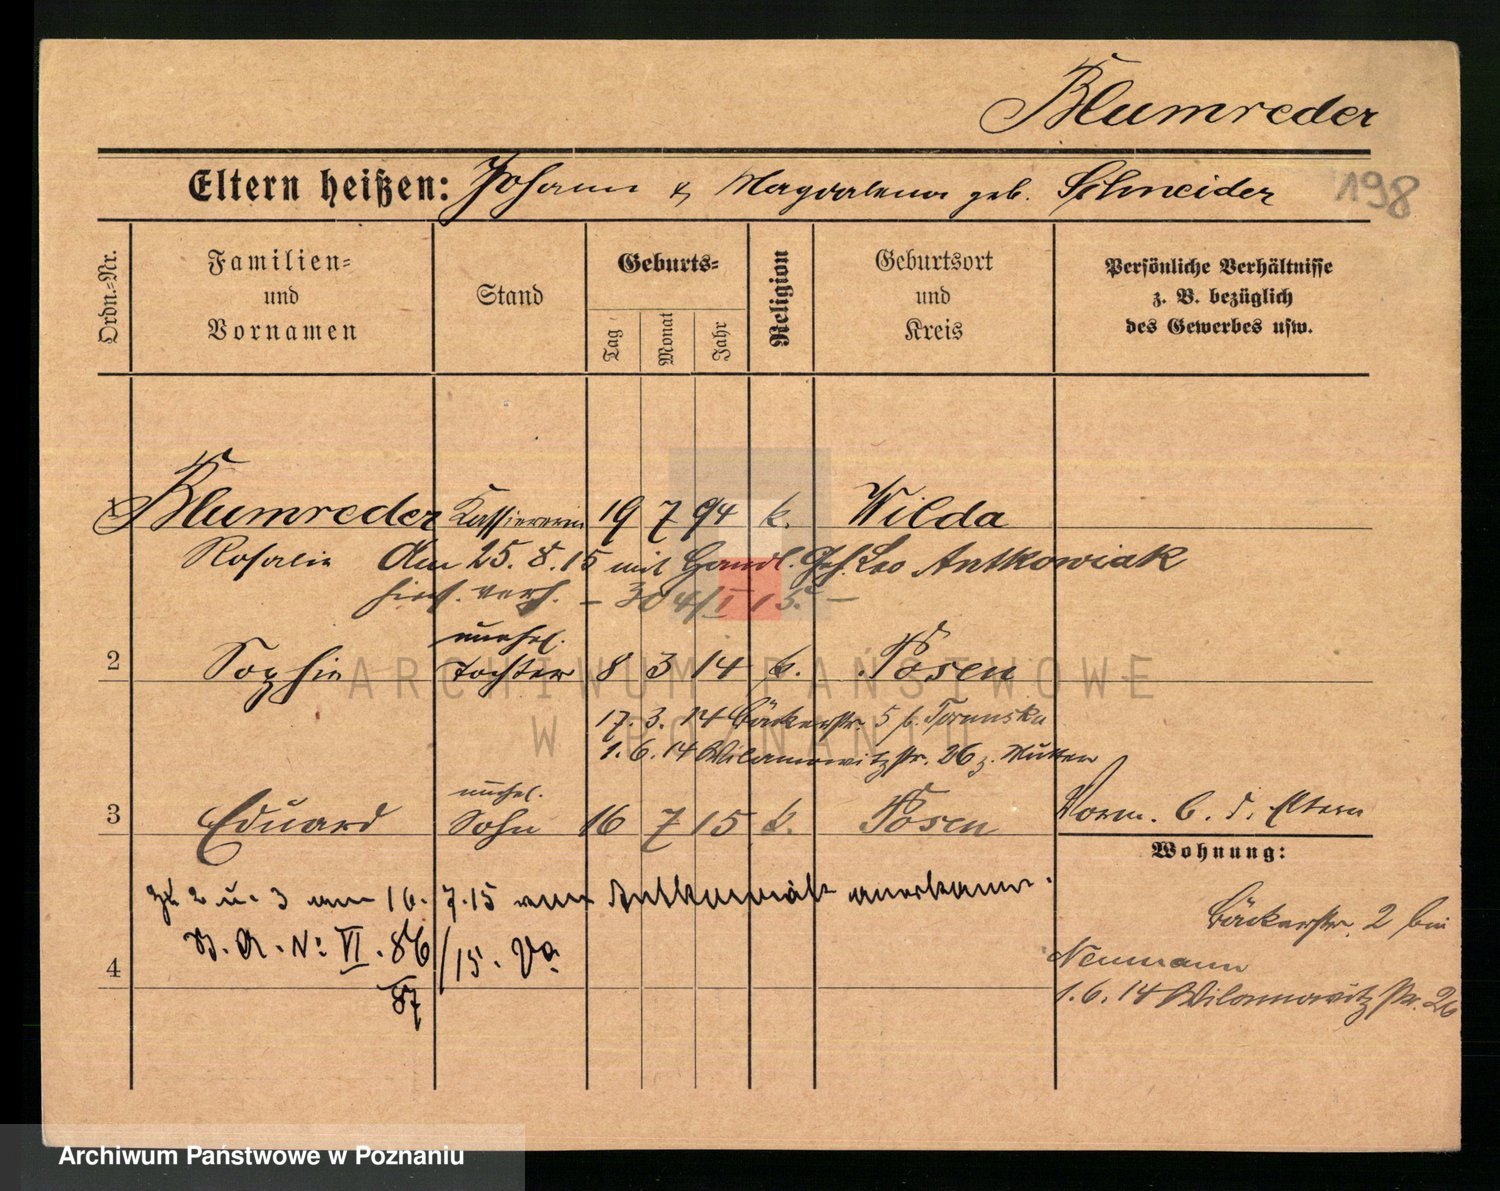 Blumreder
Eltern heißen: Johann & Magdalena geb. Schneider
198
Ordn.-Nr.
Familien-
und
Vornamen
Stand
Geburts-
Tag
Monat
Jahr
Religion
Geburtsort
und
Kreis
Persönliche Verhältnisse
z. B. bezüglich
des Gewerbes usw.
1 Blumreder Kassiererin 19 7 94 k. Wilda
Rosalie Am 25.8.15 mit Handl. Geh. Leo Antkowiak
hies. verh. – 304/I 15. –
unehel.
2 Sophie Tochter 8 3 14 k. Posen
17. 3. 14 Bäckerstr. 5 b. Toruńska
1. 6. 14 Wilamowitzstr. 26 z. Mutter
unehel.
3 Eduard Sohn 16 7 15 k. Posen
Vorm. b. d. Eltern
Wohnung:
zu 2 u. 3 am 16. 7. 15 vom Antkowiak anerkannt.
B. R. No VI. 86/15.
87
4
Bäckerstr. 2 bei
Neumann
1. 6. 14 Wilamowitzstr. 26
ARCHIWUM PAŃSTWOWE
W POZNANIU
Archiwum Państwowe w Poznaniu